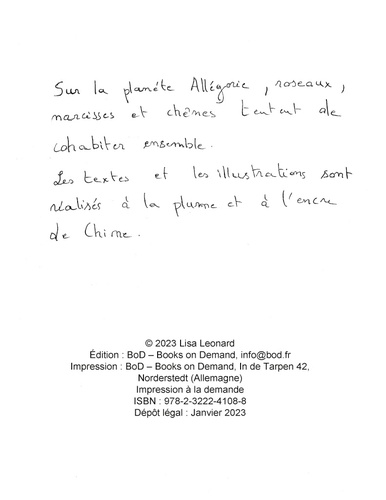 Sur la planète Allégorie, roseaux,
narcisses et chênes tentent de
cohabiter ensemble.
Les textes et les illustrations sont
réalisés à la plume et à l'encre
de Chine.
© 2023 Lisa Leonard
Édition : BoD – Books on Demand, info@bod.fr
Impression : BoD – Books on Demand, In de Tarpen 42,
Norderstedt (Allemagne)
Impression à la demande
ISBN : 978-2-3222-4108-8
Dépôt légal : Janvier 2023